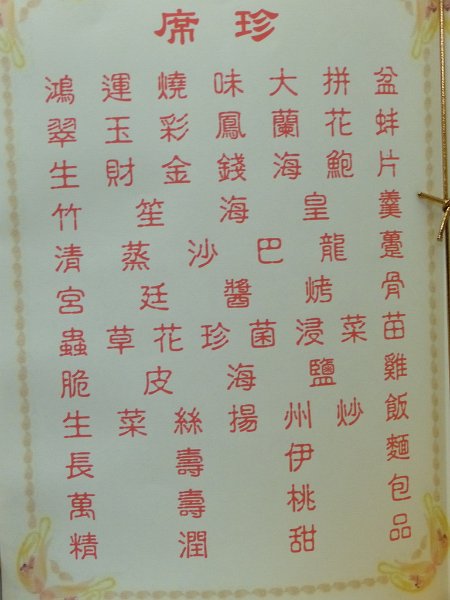 席珍
鴻運燒味大拼盆
翠玉彩鳳蘭花蚌
生財金錢海鮑片
竹笙海皇羹
清蒸沙巴龍躉
宮廷醬烤骨
蟲草花珍菌浸菜苗
脆皮海鹽雞
生菜絲揚州炒飯
長壽伊麵
萬壽桃包
精潤甜品